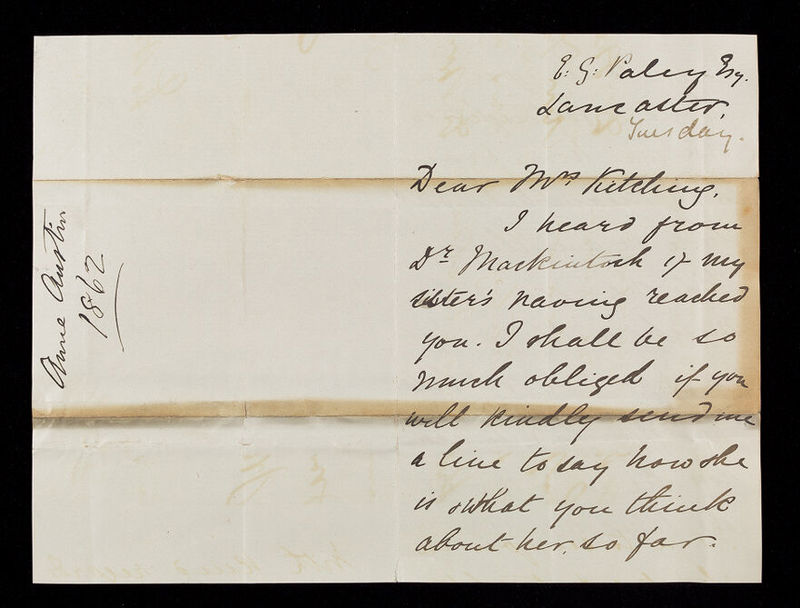 E. G. Paley Esq.
Lancaster,
Tuesday.
Dear Mrs Kitching,
I heard from
Dr Mackintosh of my
sister's having reached
you. I shall be so
much obliged if you
will kindly send me
a line to say how she
is & what you think
about her, so far.
Anne Austin
1862